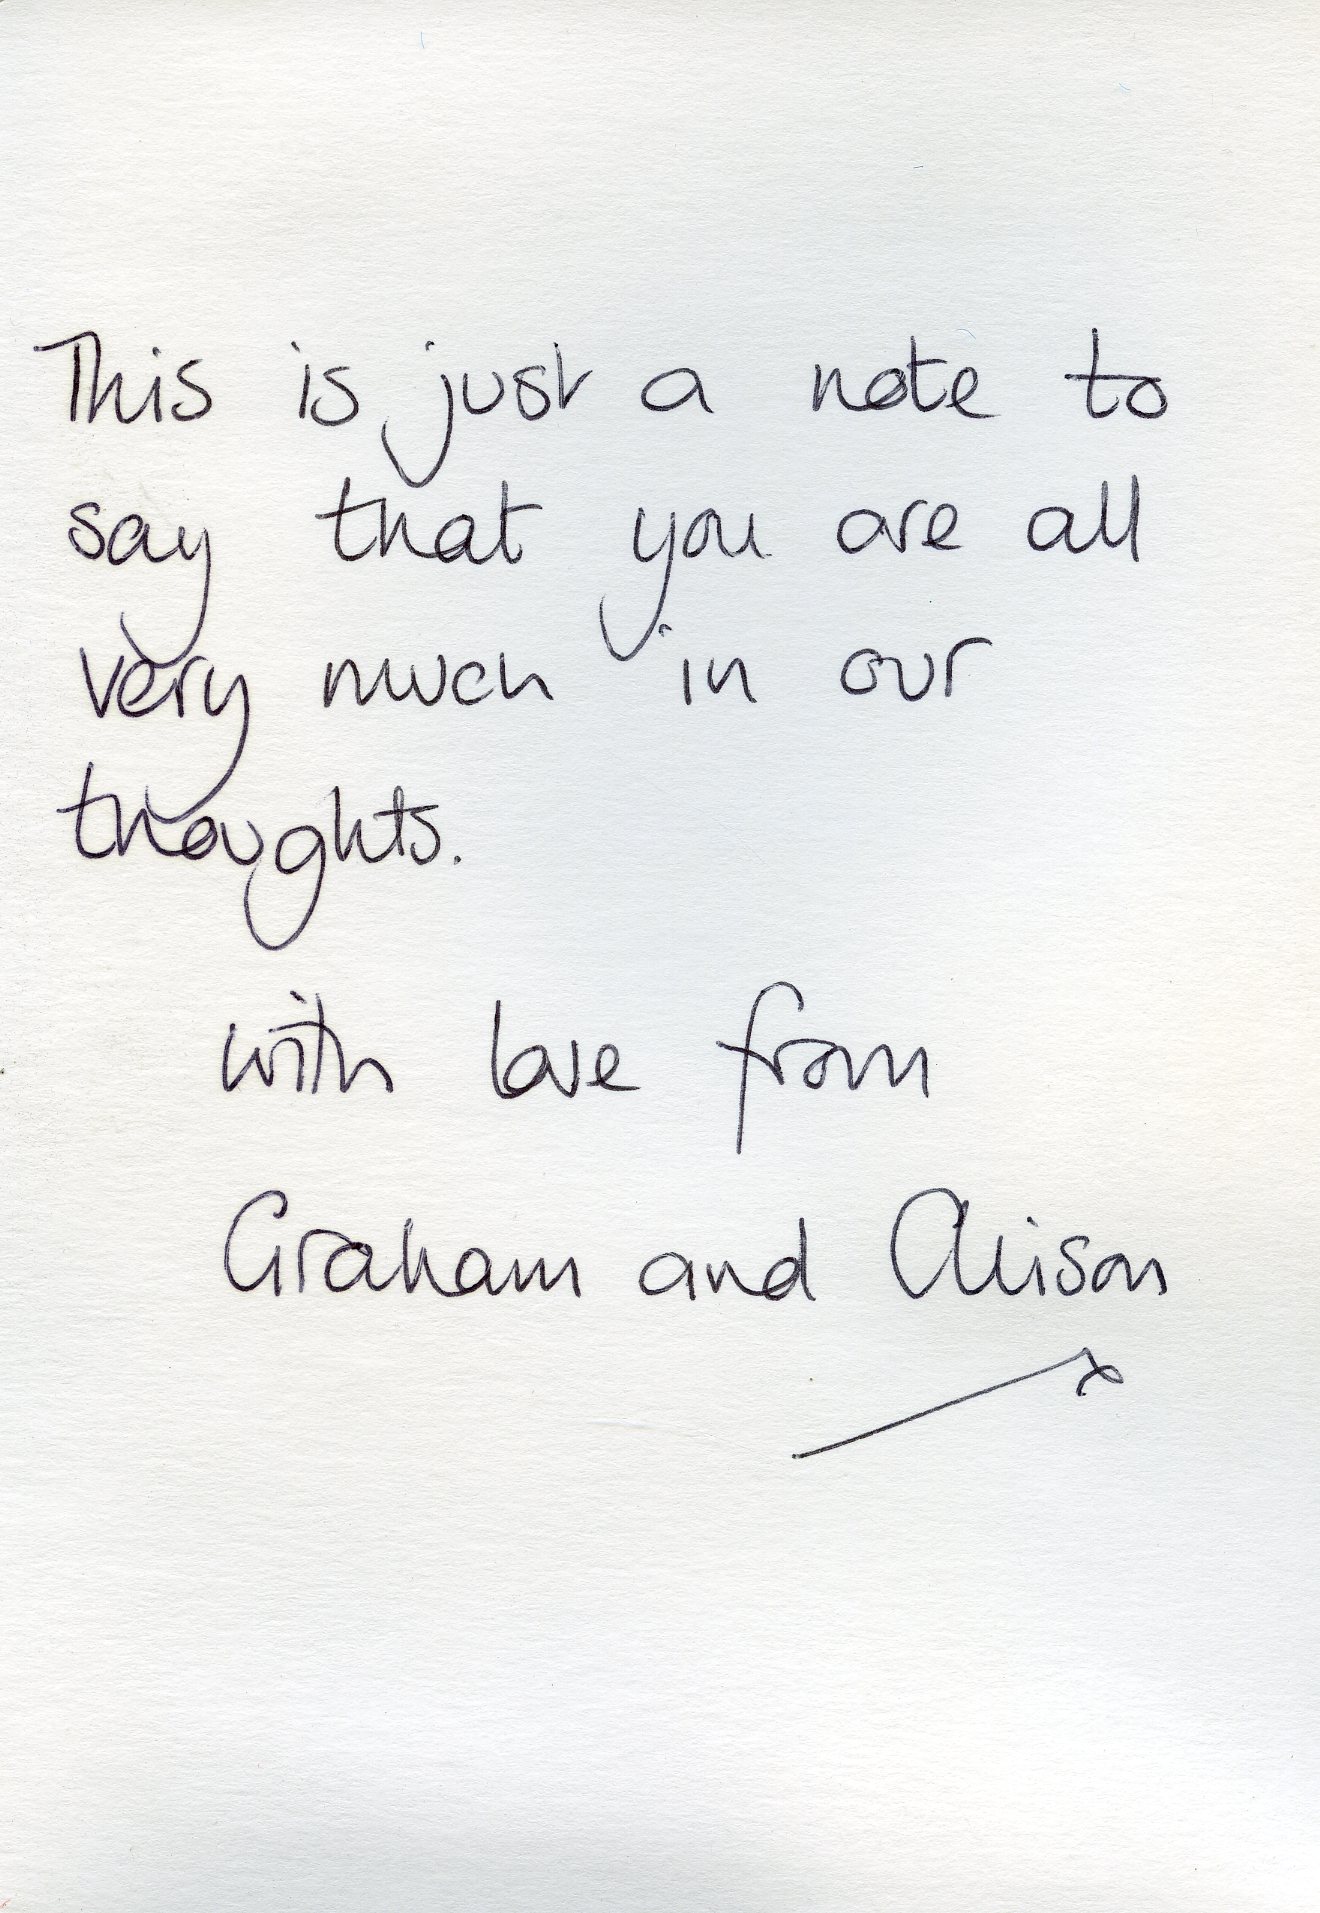 This is just a note to
say that you are all
very much in our
thoughts.
with love from
Graham and Alison
x